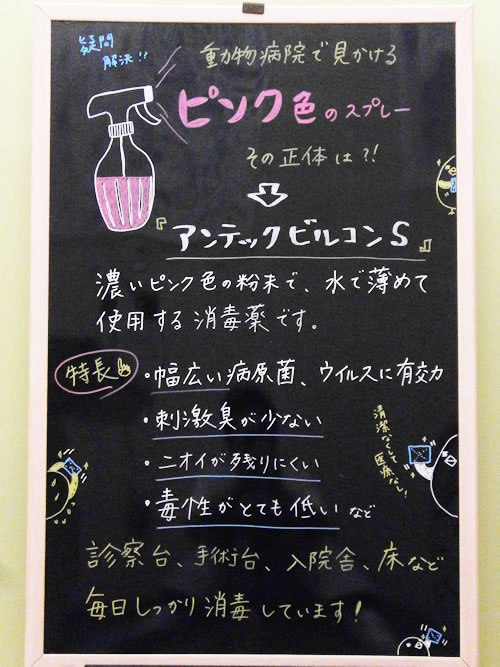 疑問
解決!!
動物病院で見かける
ピンク色のスプレー
その正体は?!
『アンテックビルコンS』
濃いピンク色の粉末で、水で薄めて
使用する消毒薬です。
特長
・幅広い病原菌、ウイルスに有効力
・刺激臭が少ない
・ニオイが残りにくい
・毒性がとても低いなど
清潔なくして
医療なし!
診察台、手術台、入院舎、床など
毎日しっかり消毒しています!